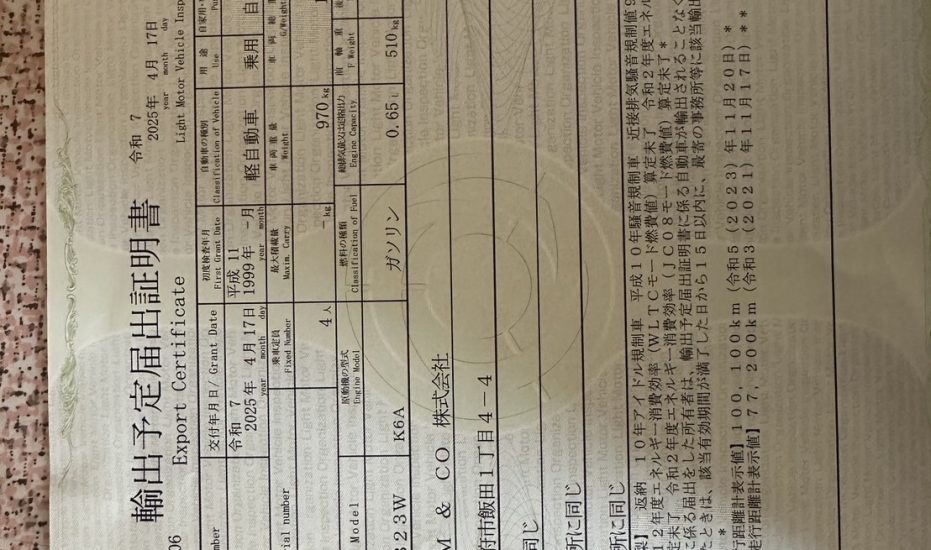 令和 7
2025年 4月 17日
year month day
輸出予定届出証明書
06 Export Certificate
Light Motor Vehicle Insp
交付年月日/ Grant Date
初度検査年月
First Grant Date
自動車の種別
Classification of Vehicle
用 途
Use
自家用・
umber
令和 7
2025年 4月 17日
year month day
平成 11
1999年 -月
year month
軽自動車
乗用
自
ial number
乗車定員
Fixed Number
最大積載量
Maxim. Carry
車 両 重 量
Weight
車 両 総
G/Weight
4 人
- kg
970 kg
Model
原動機の型式
Engine Model
燃料の種類
Classification of Fuel
総排気量又は定格出力
Engine Capacity
前 軸 重
F Weight
323W
K6A
ガソリン
0.65 L
510 kg
M & CO 株式会社
府市飯田1丁目4-4
同じ
所に同じ
所に同じ
返納 10年アイドル規制車 平成10年騒音規制車 近接排気騒音規制値9
12年度エネルギー消費効率(WLTCモード燃費値)算定未了 令和2年度エネル
定未了 令和2年度エネルギー消費効率(JC08モード燃費値)算定未了*
に係る届出をした所有者は、輸出予定届出証明書に係る自動車が輸出されることなく
たときは、該当有効期間が満了した日から15日以内に、最寄の事務所等に該当輸出
*
行距離計表示値】100,100km(令和5(2023)年11月20日)*
走行距離計表示値】77,200km(令和3(2021)年11月17日)**